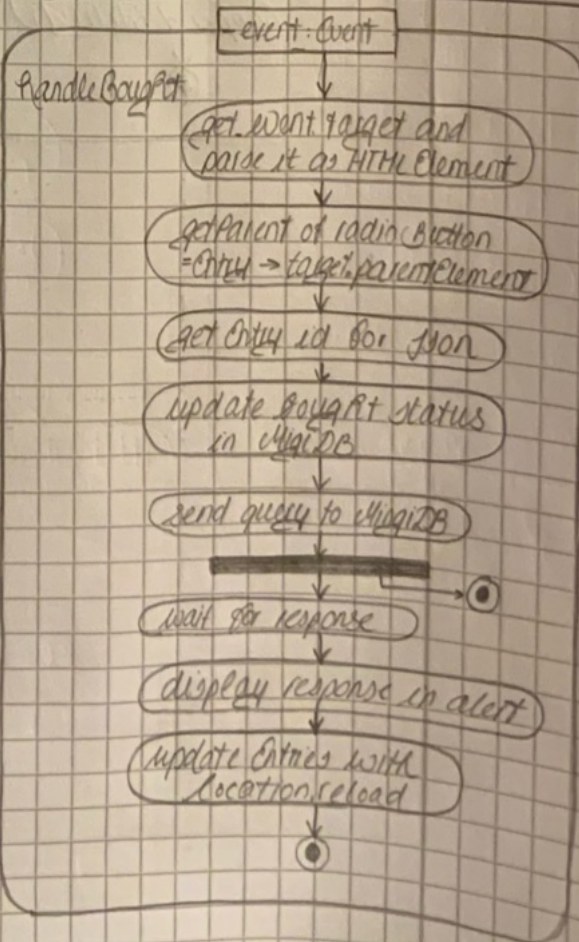 event: Event
handleBought
get event target and
parse it as HTML Element
getParent of radioButton
= Entry → target.parentElement
get Entry id for Json
update bought status
in MigiDB
send query to MingiDB
wait for response
display response in alert
update Entries with
location.reload